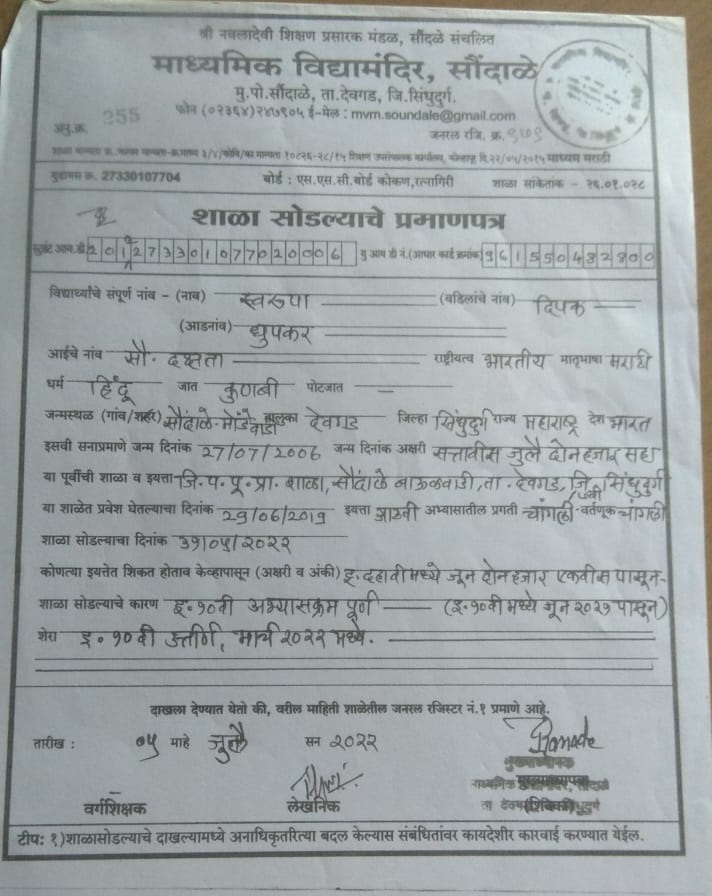 श्री नवलादेवी शिक्षण प्रसारक मंडळ, सौंदळे संचलित
माध्यमिक विद्यामंदिर, सौंदाळे
मु.पो.सौंदाळे, ता.देवगड, जि.सिंधुदुर्ग.
फोन (०२३६४) २४७९०५ ई-मेल : mvm.soundale@gmail.com
अनु.क्र. 255 जनरल रजि. क्र. ९७९
माध्यम मराठी
युडायस क्र. 27330107704 बोर्ड : एस.एस.सी.बोर्ड कोकण,रत्नागिरी शाळा सांकेतांक - २६.०१.०२८
शाळा सोडल्याचे प्रमाणपत्र
स्टुडंट आय.डी 2012733010770200006 यु आय डी नं.(आधार कार्ड क्रमांक) 961550482800
विद्यार्थ्याचे संपूर्ण नांव - (नाव) स्वरुपा (वडिलांचे नांव) दिपक
(आडनांव) धुपकर
आईचे नांव सौ. दक्षता राष्ट्रीयत्व भारतीय मातृभाषा मराठी
धर्म हिंदू जात कुणबी पोटजात —
जन्मस्थळ (गांव/शहर) सौंदाळे-मोंडेवाडी तालुका देवगड जिल्हा सिंधुदुर्ग राज्य महाराष्ट्र देश भारत
इसवी सनाप्रमाणे जन्म दिनांक 27/07/2006 जन्म दिनांक अक्षरी सत्तावीस जुलै दोन हजार सहा
या पूर्वीची शाळा व इयत्ता जि.प.पू.प्रा.शाळा, सौंदाळे बाऊळवाडी, ता-देवगड, जि सिंधुदुर्ग
या शाळेत प्रवेश घेतल्याचा दिनांक 29/06/2019 इयत्ता आठवी अभ्यासातील प्रगती चांगली वर्तणूक चांगली
शाळा सोडल्याचा दिनांक ३१/०५/२०२२
कोणत्या इयत्तेत शिकत होता व केव्हापासून (अक्षरी व अंकी) इ. दहावी मध्ये जून दोन हजार एकवीस पासून-
शाळा सोडल्याचे कारण इ.१०वी अभ्यासक्रम पूर्ण — (इ.१०वी मध्ये जून २०२१ पासून)
शेरा इ. १० वी उत्तीर्ण, मार्च २०२२ मध्ये.
दाखला देण्यात येतो की, वरील माहिती शाळेतील जनरल रजिस्टर नं.१ प्रमाणे आहे.
तारीख : ०५ माहे जुलै सन २०२२
मुख्याध्यापक
माध्यमिक सौंदाळे
वर्गशिक्षक लेखनिक
टीप: १)शाळासोडल्याचे दाखल्यामध्ये अनाधिकृतरित्या बदल केल्यास संबंधितांवर कायदेशीर कारवाई करण्यात येईल.